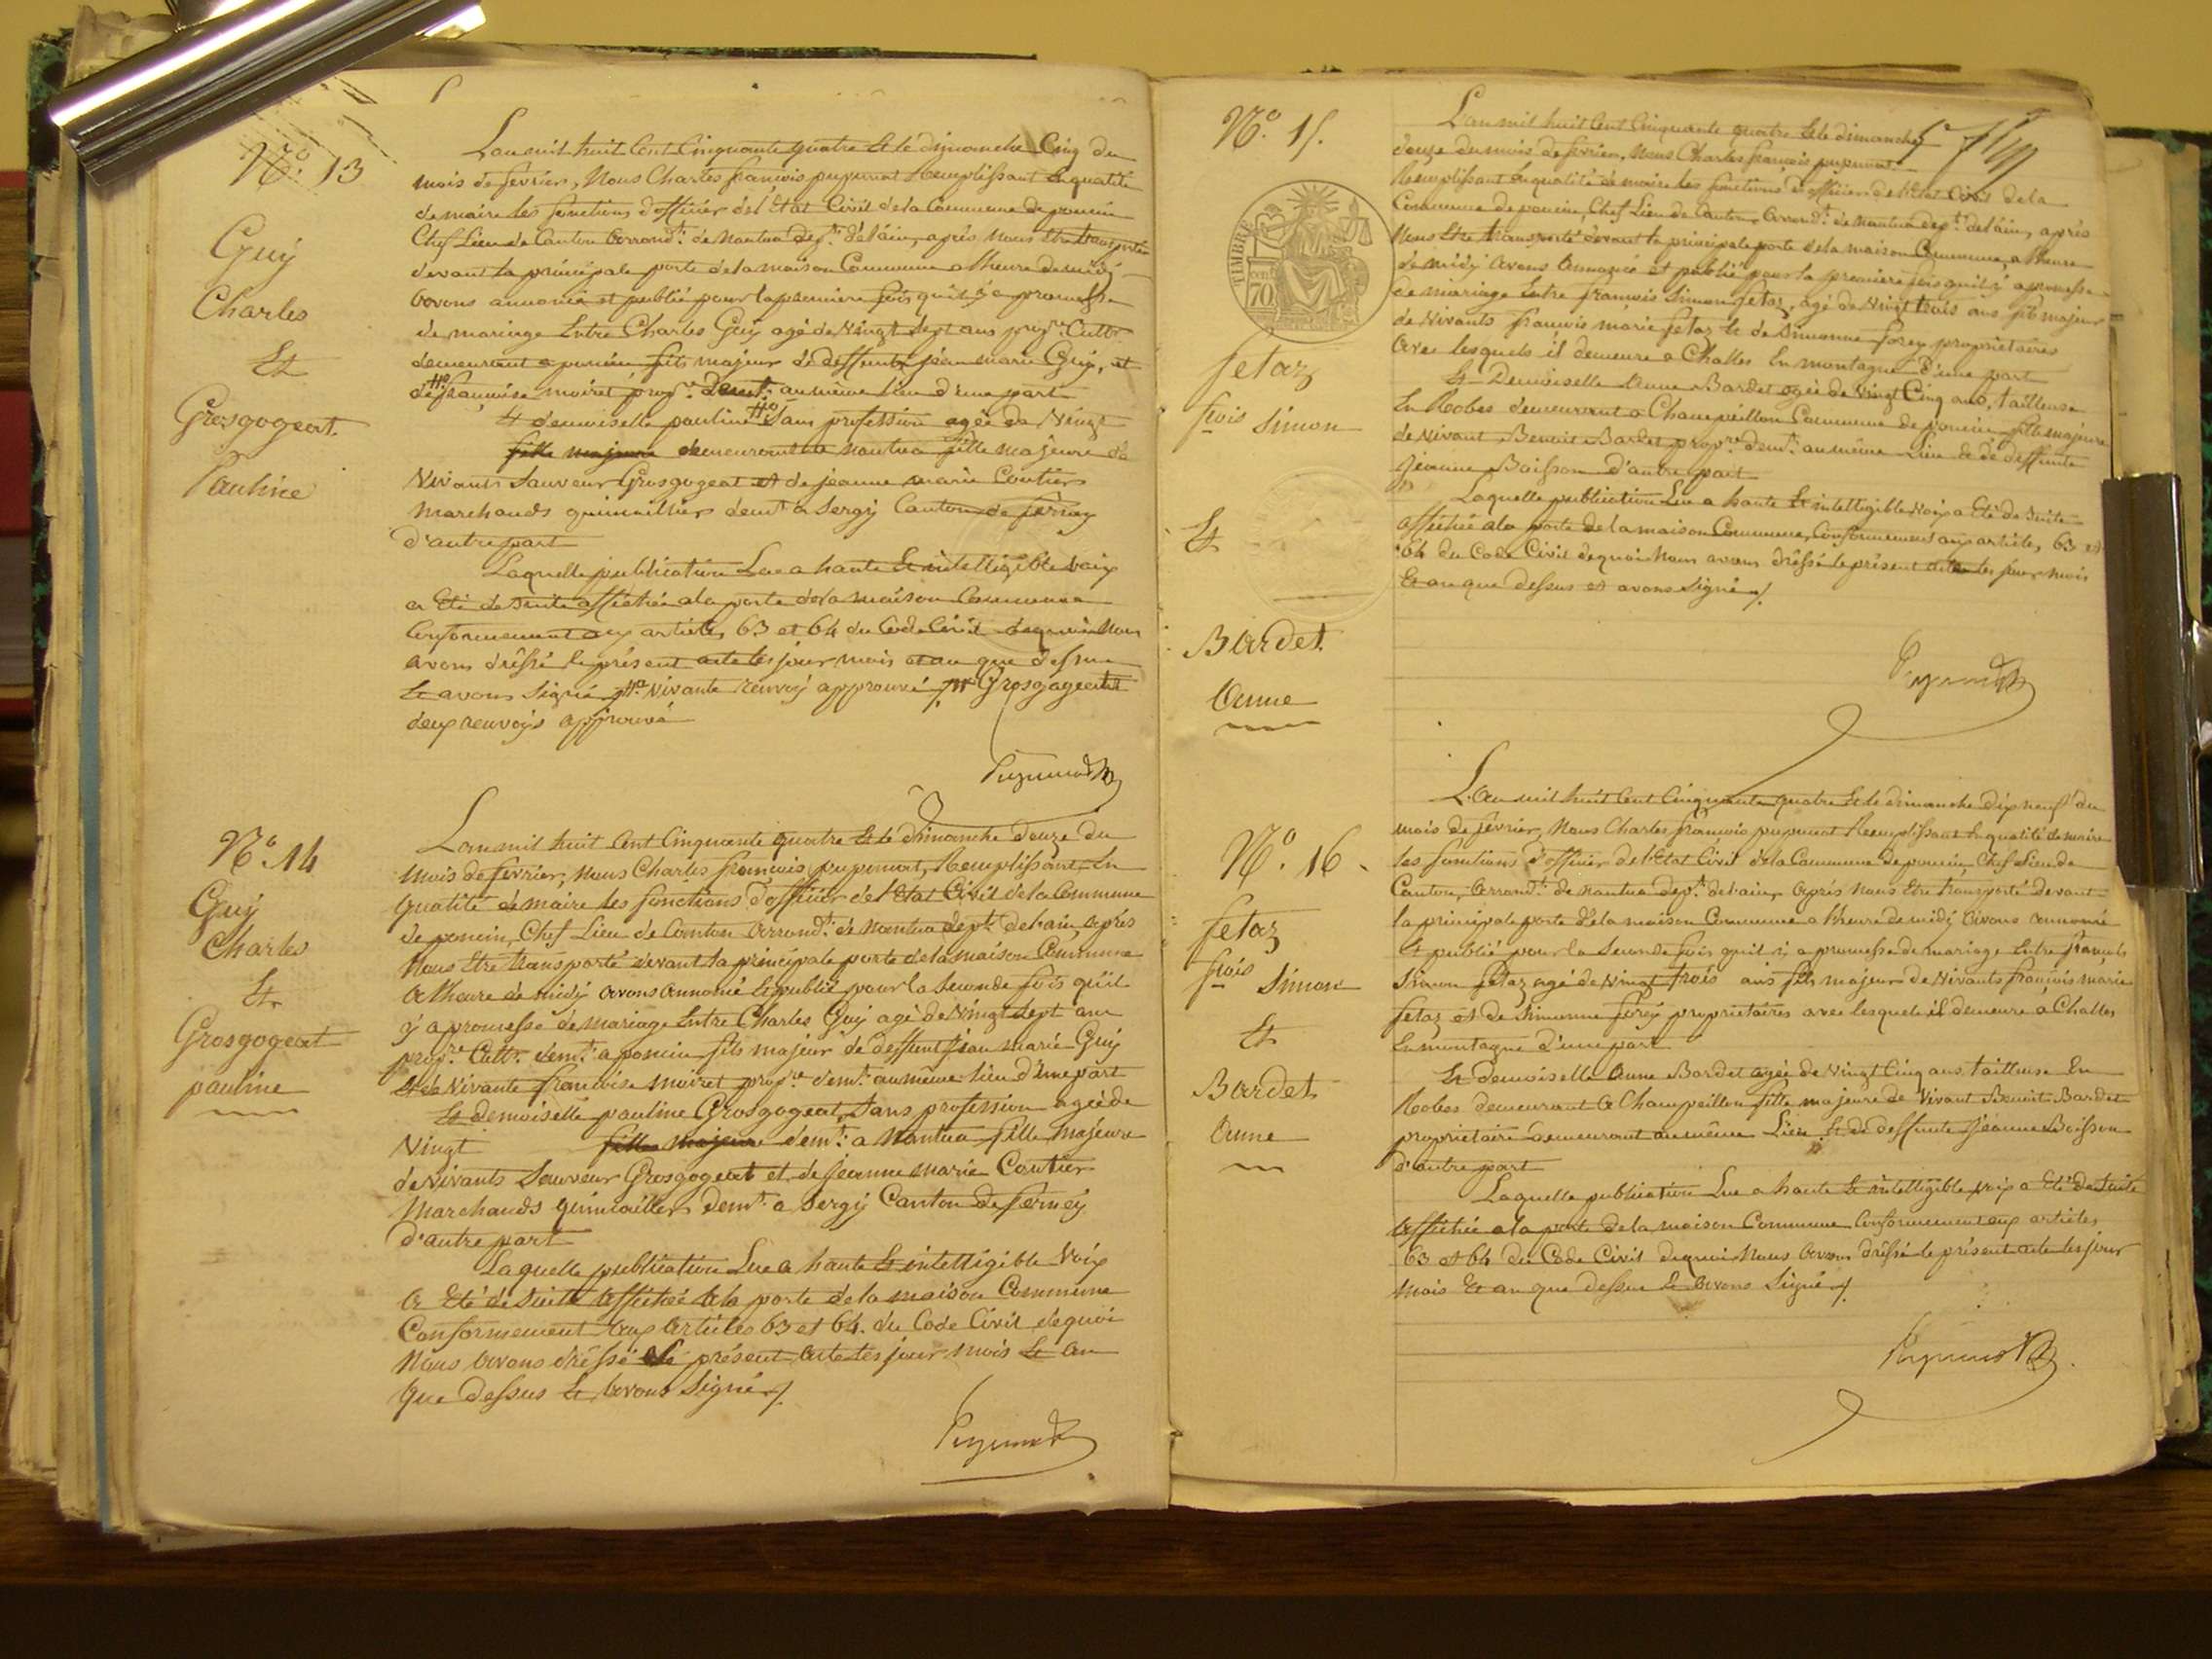 N.º 13
Guy
Charles
Et
Grosgogeat
Pauline
L'an mil huit Cent Cinquante quatre Et le dimanche Cinq du
mois de fevrier, Nous Charles françois pupunat Remplissant En qualité
de maire les fonctions d'officier de l'Etat Civil de la Commune de poncin
Chef Lieu de Canton Arrond.t de Nantua dep.t de l'ain, après Nous Etre transporté
devant la principale porte de la maison Commune a l'heure de midy
avons annoncé et publié pour la premiere fois qu'il y a promesse
de mariage Entre Charles Guy agé de Vingt Sept ans prop.re Cult.r
demeurant a poncin fils majeur de deffunt jean marie Guy, et
de françoise moiret prop.re dem.t au même lieu d'une part
Et demoiselle pauline Sans profession agée de Vingt
fille majeure demeurant a Nantua fille majeure de
Vivants Sauveur Grosgogeat et de jeanne marie Coutier
Marchands quincailliers dem.t a Sergy Canton de ferney
d'autre part
Laquelle publication Lue a haute Et intelligible voix
a Eté de suite affichée a la porte de la maison Commune
Conformement aux articles 63 et 64 du Code Civil de quoi Nous
avons dressé le présent acte les jour mois et an que dessus
Et avons Signé Vivante renvoy approuvé Grosgogeat
deux renvoys approuvé
Pupunat
N.º 14
Guy
Charles
Et
Grosgogeat
pauline
L'an mil huit Cent Cinquante quatre Et le dimanche douze du
mois de fevrier, Nous Charles françois pupunat, Remplissant En
qualité de maire les fonctions d'officier de l'Etat Civil de la Commune
de poncin, Chef Lieu de Canton Arrond.t de Nantua dep.t de l'ain, après
Nous Etre transporté devant la principale porte de la maison Commune
a l'heure de midy avons annoncé Et publié pour la Seconde fois qu'il
y a promesse de mariage Entre Charles Guy agé de Vingt Sept ans
prop.re Cult.r dem.t a poncin fils majeur de deffunt jean marie Guy
Et de Vivante francoise moiret prop.re dem.t au même lieu d'une part
Et demoiselle pauline Grosgogeat, Sans profession agée de
Vingt fille majeure dem.t a Nantua fille majeure
de Vivants Sauveur Grosgogeat et de jeanne marie Coutier
Marchands quincailliers dem.t a Sergy Canton de ferney
d'autre part
Laquelle publication Lue a haute Et intelligible Voix
a Eté de Suite affichée a la porte de la maison Commune
Conformement aux articles 63 et 64 du Code Civil de quoi
Nous avons dressé le présent acte les jour mois Et an
que dessus Et avons Signé
Pupunat
N.º 15.
TIMBRE
70
fetaz
f.ois Simon
Et
Bardet
Anne
L'an mil huit Cent Cinquante quatre Et le dimanche
douze du mois de fevrier, Nous Charles françois pupunat
Remplissant En qualité de maire les fonctions d'officier de l'Etat Civil de la
Commune de poncin, Chef Lieu de Canton, Arrond.t de Nantua dep.t de l'ain, après
Nous Etre transporté devant la principale porte de la maison Commune, a l'heure
de midy avons annoncé et publié pour la premiere fois qu'il y a promesse
de mariage Entre françois Simon fetaz, agé de Vingt trois ans fils majeur
de Vivants françois marie fetaz Et de Simonne forey proprietaires
avec lesquels il demeure a Challes En montagne d'une part
Et Demoiselle Anne Bardet agée de Vingt Cinq ans, tailleuse
En Robes demeurant a Champeillon Commune de poncin fille majeure
de Vivant Benoit Bardet prop.re dem.t au même Lieu Et de deffunte
Jeanne Boisson d'autre part
Laquelle publication Lue a haute Et intelligible Voix a Eté de Suite
affichée a la porte de la maison Commune, Conformement aux articles, 63 et
64 du Code Civil de quoi Nous avons dressé le présent acte les jour mois
Et an que dessus et avons Signé
Pupunat
N.º 16.
fetaz
f.ois Simon
Et
Bardet
Anne
L'an mil huit Cent Cinquante quatre Et le dimanche dix neuf du
mois de fevrier, Nous Charles françois pupunat Remplissant En qualité de maire
les fonctions d'officier de l'Etat Civil de la Commune de poncin, Chef Lieu de
Canton, Arrond.t de Nantua dep.t de l'ain, après Nous Etre transporté devant
la principale porte de la maison Commune a l'heure de midy avons annoncé
Et publié pour la Seconde fois qu'il y a promesse de mariage Entre françois
Simon fetaz agé de Vingt trois ans fils majeur de Vivants françois marie
fetaz et de Simonne forey proprietaires avec lesquels il demeure a Challes
En montagne d'une part
Et demoiselle Anne Bardet agée de Vingt Cinq ans, tailleuse En
Robes demeurant a Champeillon fille majeure de Vivant Benoit Bardet
proprietaire demeurant au même Lieu Et de deffunte Jeanne Boisson
d'autre part
Laquelle publication Lue a haute Et intelligible voix a Eté de Suite
affichée a la porte de la maison Commune Conformement aux articles
63 et 64 du Code Civil de quoi Nous avons dressé le présent acte les jour
mois Et an que dessus Et avons Signé
Pupunat